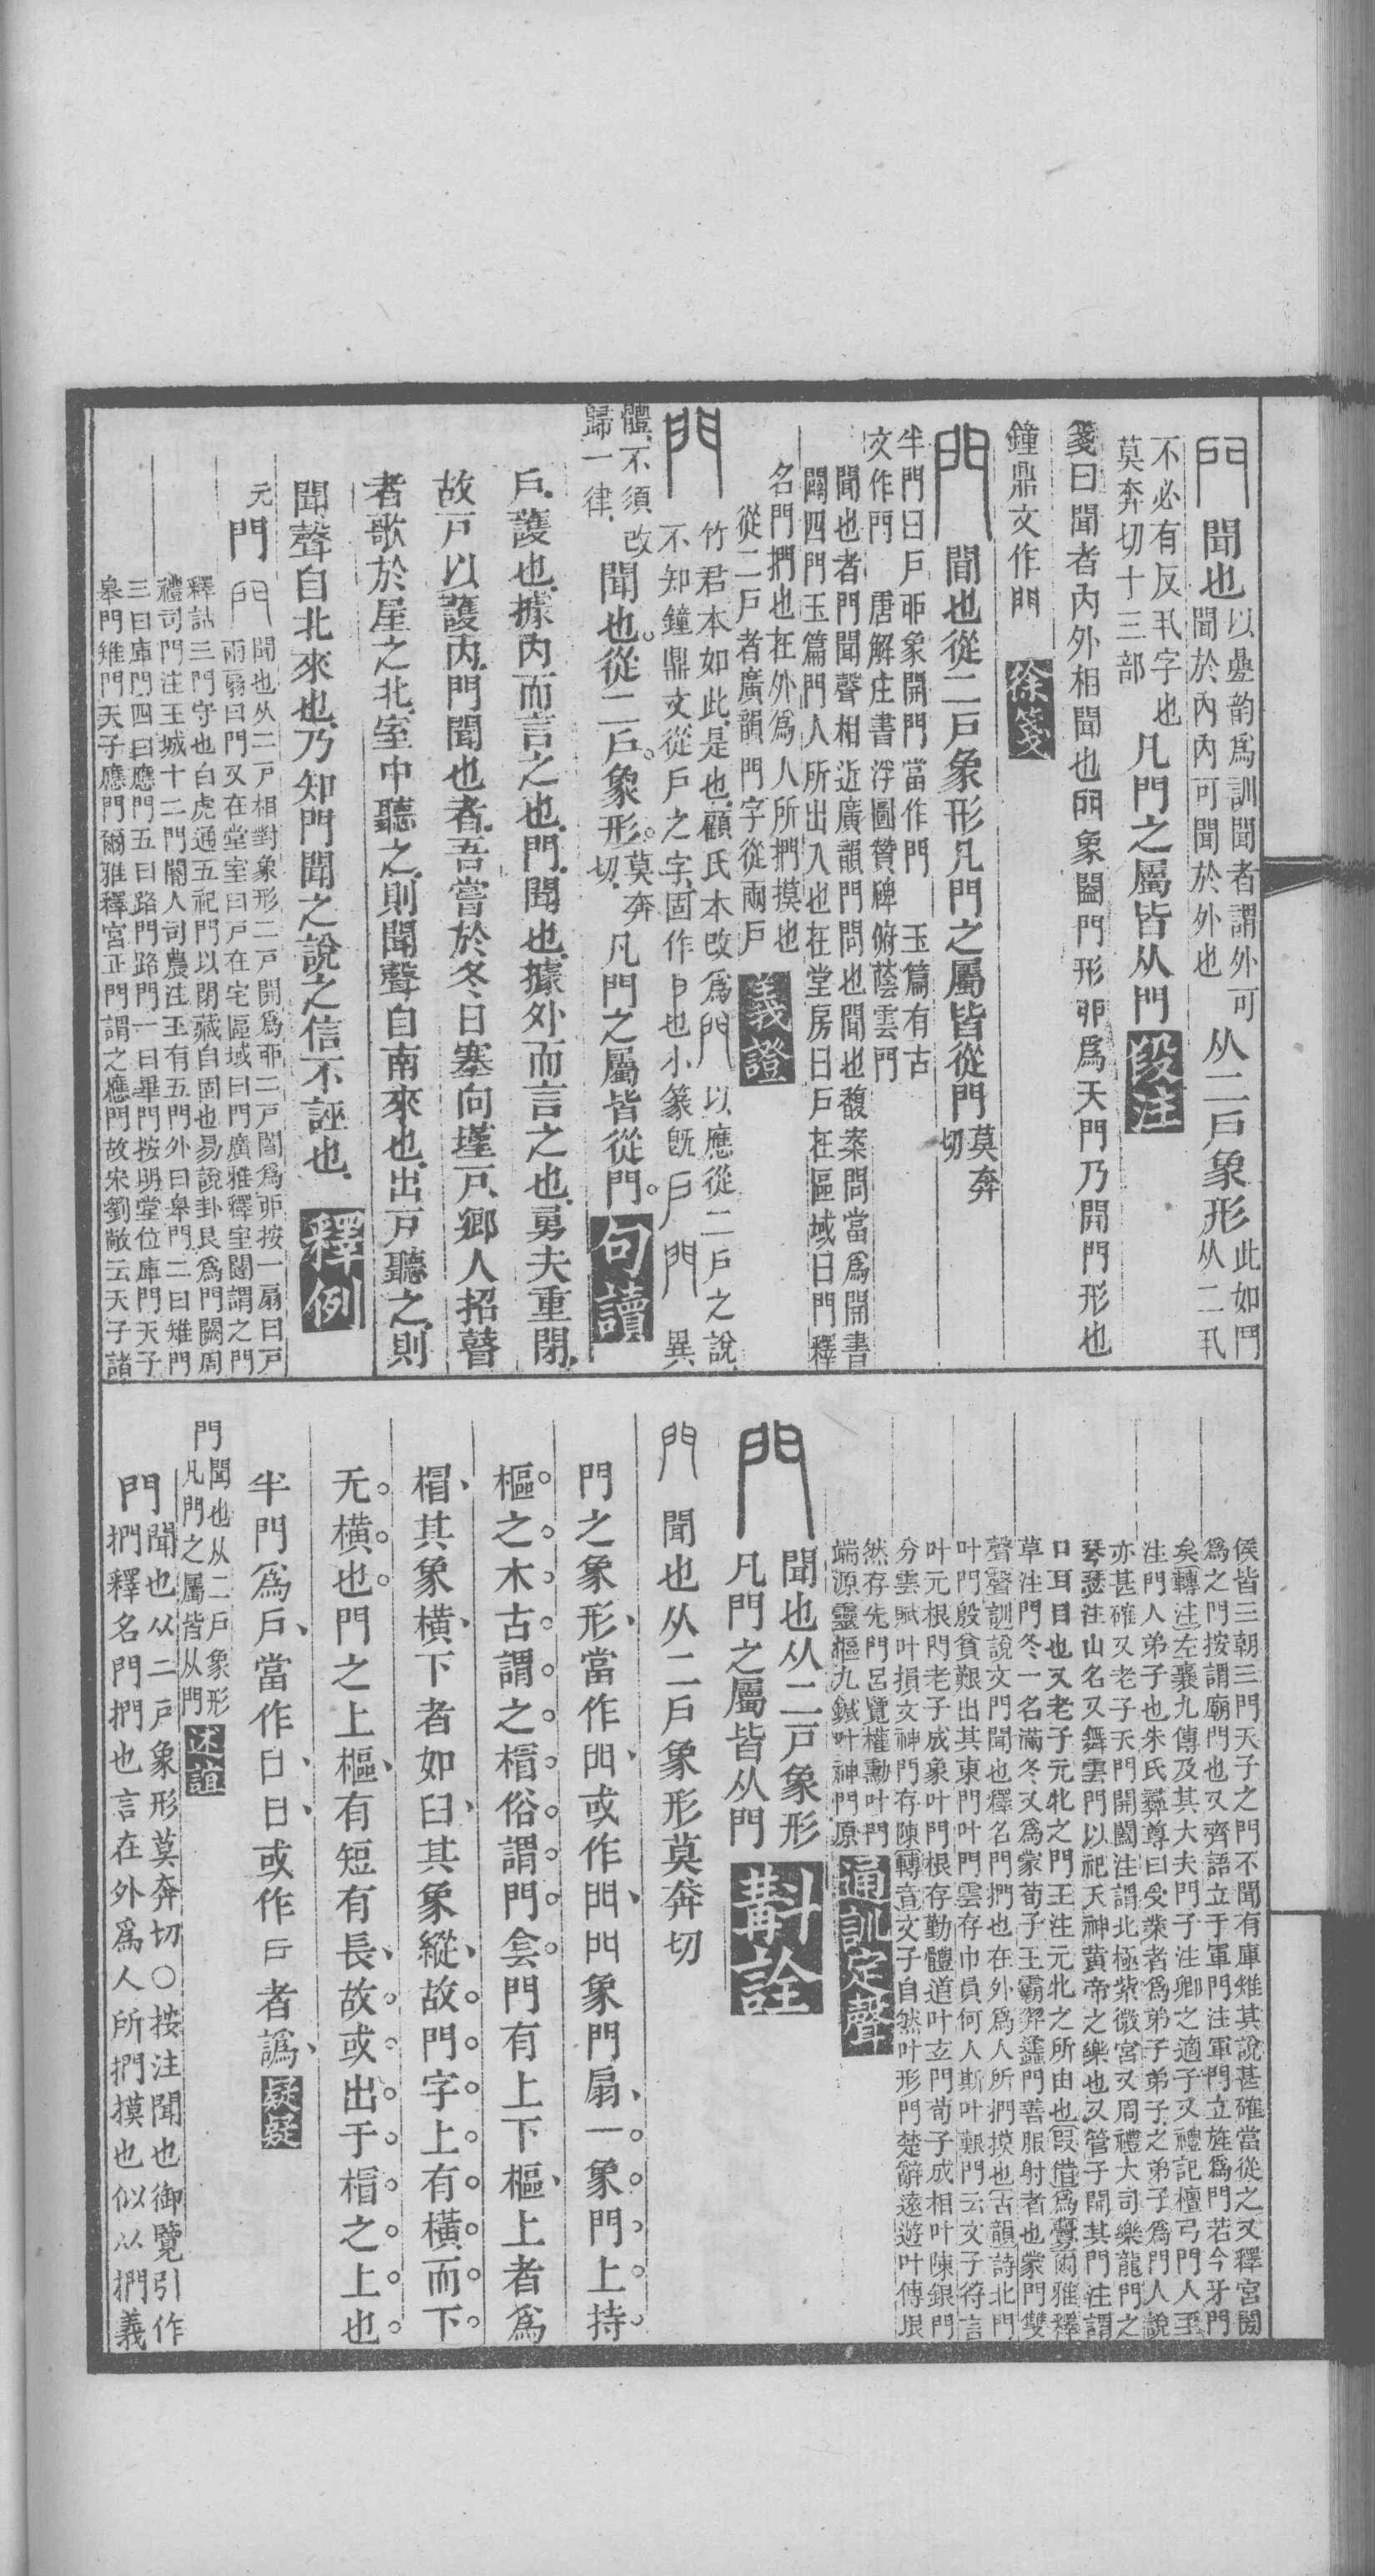 門聞也以曡韵爲訓聞者謂外可
聞於內內可聞於外也从二戶象形此如鬥
从二丮
不必有反丮字也
莫奔切十三部凡門之屬皆从門段注
箋曰聞者內外相聞也丣象闔門形丣爲天門乃開門形也
鐘鼎文作門徐箋
門聞也從二戶象形凡門之屬皆從門莫奔
切
半門曰戶丣象開門當作門　玉篇有古
文作門　唐解庄書浮圖贊碑俯蔭雲門
聞也者門聞聲相近廣韻門問也聞也馥案問當爲開書
闢四門玉篇門人所出入也在堂房曰戶在區域曰門釋
名門捫也在外爲人所捫摸也
從二戶者廣韻門字從兩戶義證
門竹君本如此是也顧氏本改爲門以應從二戶之說
不知鐘鼎文從戶之字固作戶也小篆既戶門異
體不須改
歸一律聞也從二戶象形莫奔
切凡門之屬皆從門句讀
戶護也據內而言之也門聞也據外而言之也勇夫重閉
故戶以護內門聞也者吾嘗於冬日塞向墐戶鄉人招瞽
者歌於屋之北室中聽之則聞聲自南來也出戶聽之則
聞聲自北來也乃知門聞之說之信不誣也釋例
元門門聞也从二戶相對象形二戶開爲丣二戶闔爲丣按一扇曰戶
兩扇曰門又在堂室曰戶在宅區域曰門廣雅釋室闥謂之門
釋詁三門守也白虎通五祀門以閉藏自固也易說卦艮爲門闕周
禮司門注王城十二門閽人司農注王有五門外曰皋門二曰雉門
三曰庫門四曰應門五曰路門路門一曰畢門按明堂位庫門天子
皋門雉門天子應門爾雅釋宮正門謂之應門故宋劉敞云天子諸
侯皆三朝三門天子之門不聞有庫雉其說甚確當從之又釋宮閍
爲之門按謂廟門也又齊語立于軍門注軍門立旌爲門若今牙門
矣轉注左襄九傳及其大夫門子注卿之適子又禮記檀弓門人至
注門人弟子也朱氏彝尊曰受業者爲弟子弟子之弟子爲門人說
亦甚確又老子天門開闔注謂北極紫微宮又周禮大司樂龍門之
琴瑟注山名又舞雲門以祀天神黃帝之樂也又管子開其門注謂
口耳目也又老子元牝之門王注元牝之所由也叚借爲虋爾雅釋
草注門冬一名滿冬又爲蒙荀子王霸羿蠭門善服射者也蒙門雙
聲聲訓說文門聞也釋名門捫也在外爲人所捫摸也古韻詩北門
叶門殷貧艱出其東門叶門雲存巾員何人斯叶艱門云文子符言
叶元根門老子成象叶門根存勤體道叶玄門荀子成相叶陳銀門
分雲賦叶損文神門存陳轉音文子自然叶形門楚辭遠遊叶傳垠
然存先門呂覽權勳叶門
端源靈樞九鍼叶神門原通訓定聲
門聞也从二戶象形
凡門之屬皆从門斠詮
門　聞也从二戶象形莫奔切
門之象形當作門或作門門象門扇一象門上持
樞之木古謂之楣俗謂門㑹門有上下樞上者爲
楣其象橫下者如臼其象縱故門字上有橫而下
无橫也門之上樞有短有長故或出于楣之上也
半門爲戶當作日日或作戶者譌疑疑
門聞也从二戶象形
凡門之屬皆从門述誼
門聞也从二戶象形莫奔切〇按注聞也御覽引作
捫釋名門捫也言在外爲人所捫摸也似以捫義